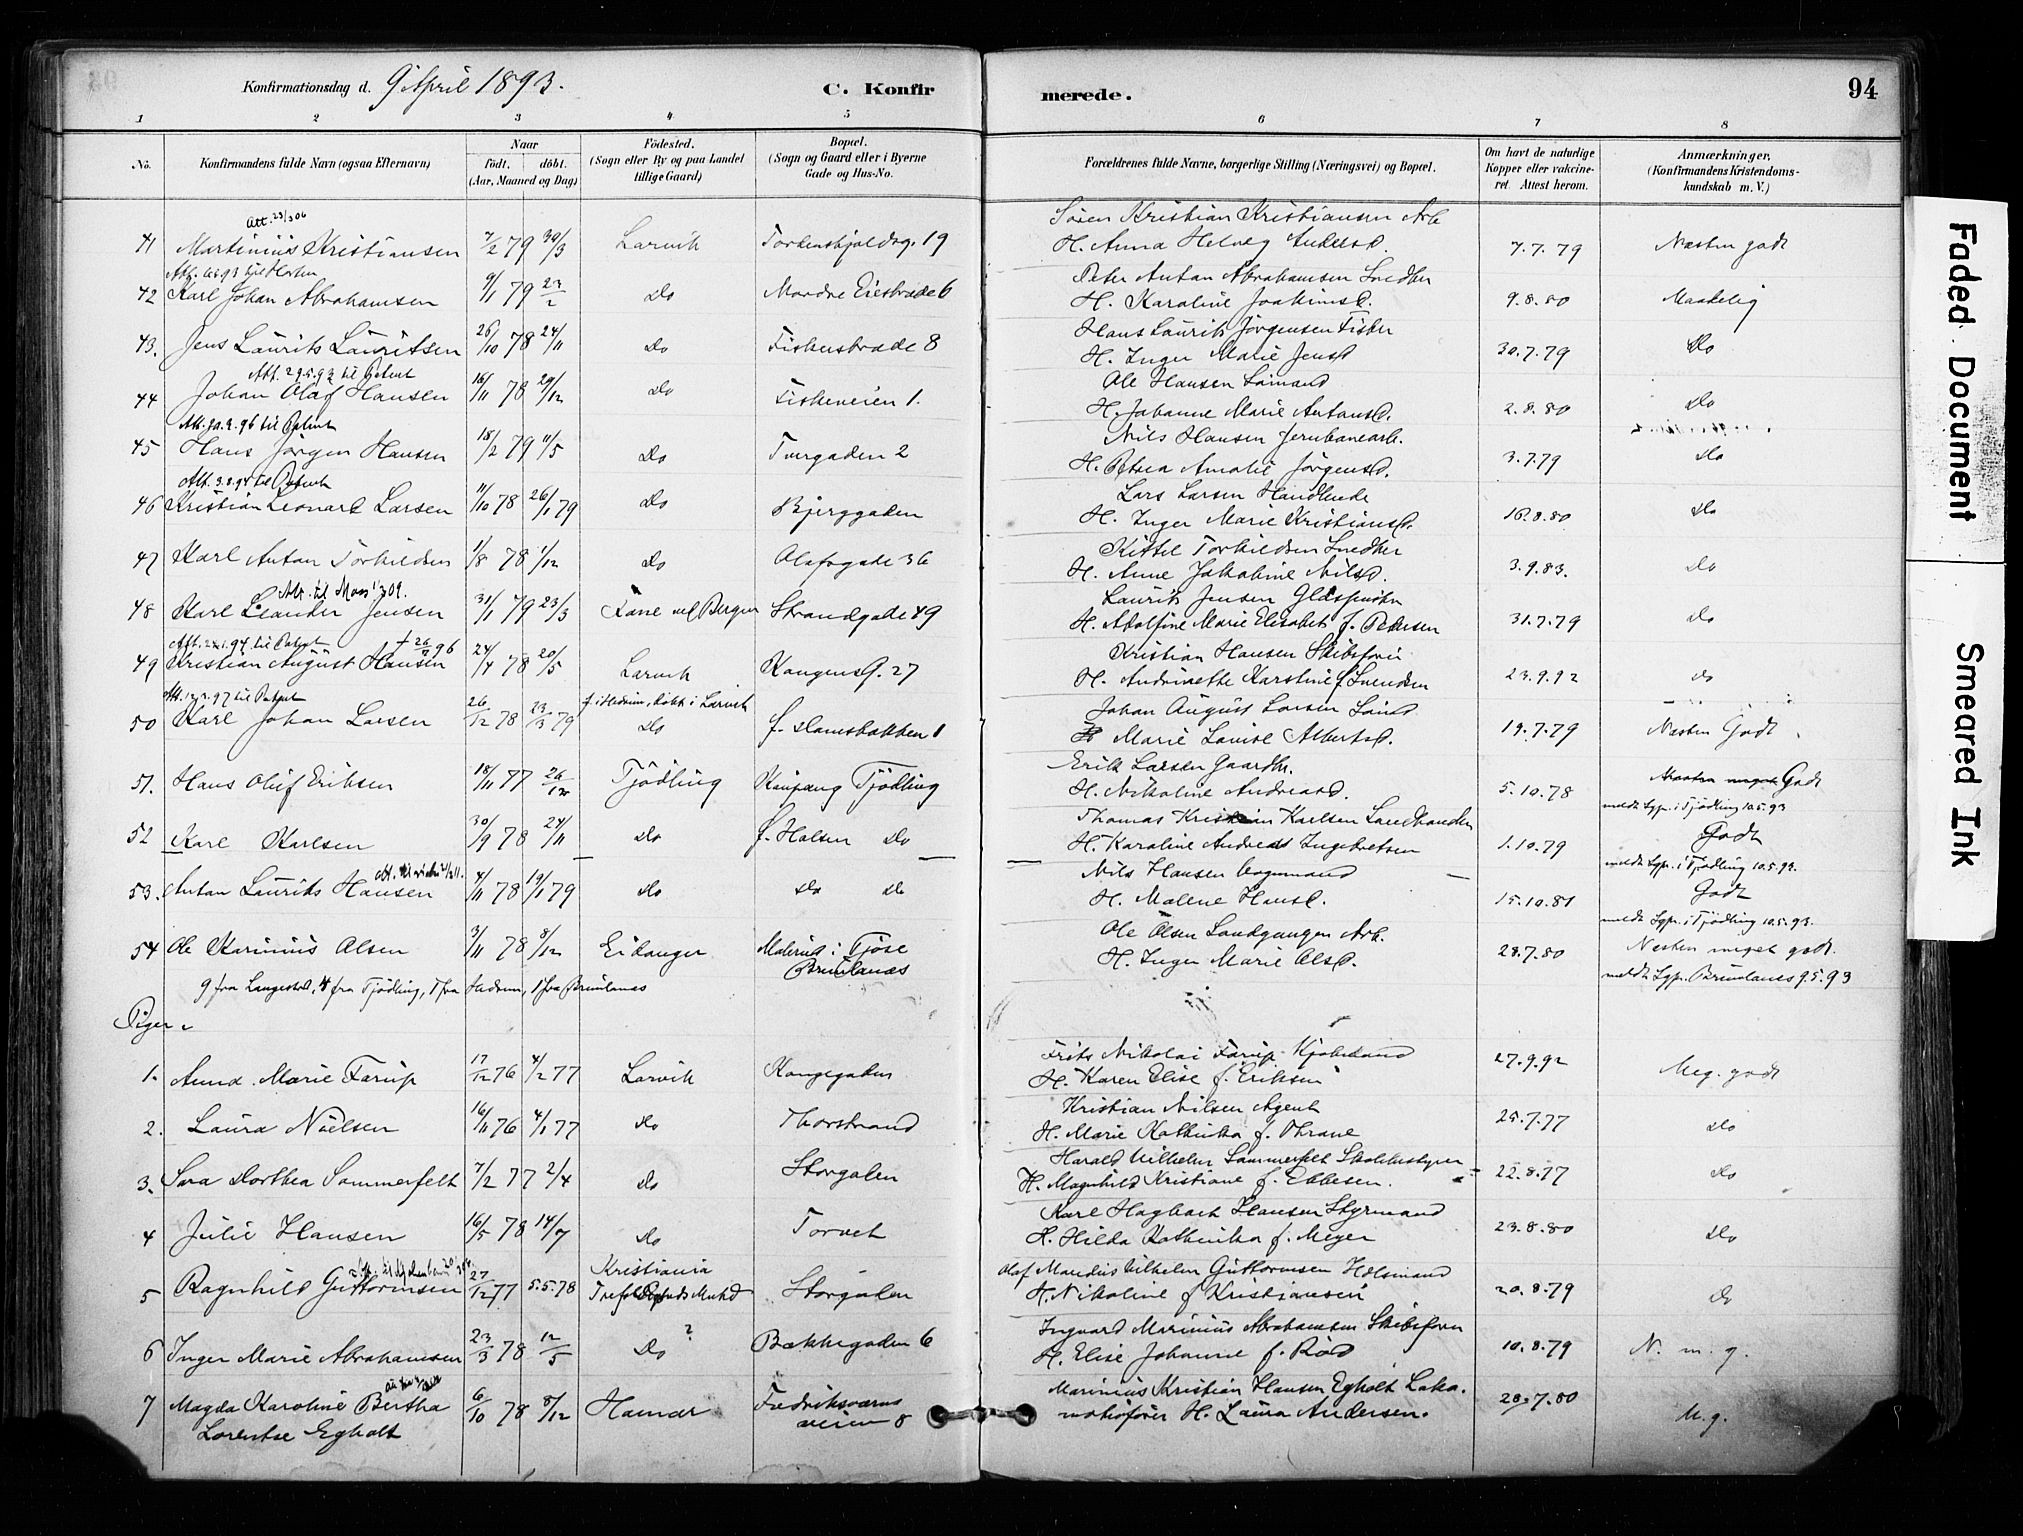 Konfirmationsdag d. 9 April 1893. C. Konfirmerede. 94
1 2 3 4 5 6 7 8
No. Konfirmandens fulde Navn (ogsaa Efternavn) Naar født. døbt. (Aar, Maaned og Dag) Fødested. (Sogn eller By og paa Landet tillige Gaard) Bopæl. (Sogn og Gaard eller i Byerne Gade og Hus-No. Forældrenes fulde Navne, borgerlige Stilling (Næringsvei) og Bopæl. Om havt de naturlige Kopper eller vakcineret. Attest herom. Anmærkninger. (Konfirmandens Kristendomskundskab m. V.)
Att. 23/3 06 Søren Kristian Kristiansen Arb
41 Martinius Kristiansen 7/2 79 30/3 Larvik Tordenskjoldsg. 19 H. Anna Helvig Andersd. 7.7.79 Næsten godt
Peter Anton Abrahamsen Snedker
42 Karl Johan Abrahamsen 9/1 79 23/2 Do 6 H. Karoline Joakimsd. 9.8.80 Maadelig
Hans Laurits Jørgensen Fisker
43. Jens Laurits Lauritsen 26/10 78 24/11 Do Fiskerstræde 8 H. Inger Marie Jensd 30.7.79 Do
Att. 29.5.93 til Ole Hansen Sømand
44 Johan Olaf Hansen 16/11 78 29/12 Do Fiskeveien 1. H. Johanne Marie Antonsd. 2.8.80 Do
Nils Hansen Jernbanearb.
45 Hans Jørgen Hansen 18/2 79 11/5 Do Tvergaden 2 H. Petrea Amalie Jørgensd. 3.7.79 Do
Att. 3.8.94 til Patent Lars Larsen Handlende
46 Kristian Leonard Larsen 11/10 78 26/1 79 Do Bjerggaden H. Inger Marie Kristiansd. 16.8.80 Do
Kittel Torkildsen Snedker
47 Karl Anton Torkildsen 1/8 78 1/12 Do Olafsgade 36 H. Anne Jakobine Nilsd. 3.9.83. Do
Att. til Moss 09. Laurits Jensen
48 Karl Leander Jensen 31/1 79 23/3 Fane ved Bergen Strandgade 49 H. Adolfine Marie Elisabet f. Pedersen 31.7.79 Do
Kristian Hansen Skibsfører
49 Kristian August Hansen 24/4 78 20/5 Larvik Kongensg. 27 H. Andrinette Karoline f. Svendsen 23.9.92 do
til Patent f. i Hedrum, døbt i Larvik Johan August Larsen
50 Karl Johan Larsen 26/12 78 23/3 79 Do 1 H Marie Lovise Albertsd. 19.7.79 Næsten Godt
Erik Larsen Gaardbr.
51. Hans Oluf Eriksen 18/11 77 26/12 Tjødling Kaupang Tjødling H. Nikoline Andreasd. 5.10.78 Godt
meldt Sgpr. i Tjødling 10.5.93
Thomas Kristian Karlsen
52 Karl Karlsen 30/9 78 24/11 Do f. Halsen Do H. Karoline Andrea Ingebretsen 1.10.79 Godt
meldt Sgpr. i Tjødling 10.5.93.
Nils Hansen
53. Anton Laurits Hansen 4/11 78 19/1 79 Do Do Do H. Malene Hansd. 15.10.81 Godt
meldt Sgpr. i Tjødling 10.5.93.
Ole Olsen Landgangen Arb.
54 Ole Karinius Olsen 3/11 78 8/12 Eidanger i Tjøse Brunlanæs H. Inger Marie Olsd. 28.7.80 Næsten meget godt.
9 fra Langestrd, 4 fra Tjødling, 1 fra Hedrum, 1 fra Brunlanæs meldt Sgpr. Brunlanes 9.5.93
Piger.
Frits Nikolai Farup Kjøbmand
1. Anna Marie Farup 17/12 76 4/2 77 Larvik Kongegaden H. Karen Elise f. Eriksen 27.9.92 Meg. godt
Kristian Nilsen Agent
2. Laura Nielsen 16/11 76 4/1 77 Do Thorstrand H. Marie Kathinka f. Thrane 25.7.77 Do
Harald Vilhelm Sommerfelt Skolebestyrer
3. Sara Dorthea Sommerfelt 7/2 77 2/4 Do Storgaden H. Magnhild Kristiane f. Ebbesen. 22.8.77 Do
Karl Hagbart Hansen Styrmand
4 Julie Hansen 16/5 78 14/7 Do Torvet H. Hilda Kathinka f. Meyer 23.8.80 Do
Kristiania Olaf Mandius Vilhelm Guttormsen
5 Ragnhild Guttormsen 27/12 77 5.5.78 Storgaden H. Nikoline f Kristiansen 20.8.79 Do
Ingvard Marinius Abrahamsen Skibsfører
6 Inger Marie Abrahamsen 23/3 78 12/5 Do ? Bækkegaden 6 H. Elise Johanne f. Rød 10.8.79 N. m. g.
7 Magda Karoline Bertha Lorentse Egholt 6/10 78 8/12 Hamar Fredriksværns veien 8 Marinius Kristian Hansen Egholt Lokomotivfører H. Laura Andersen. 28.7.80 M. g.
Faded Document
Smeared Ink